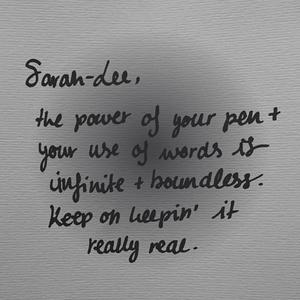 Sarah-Lee,
the power of your pen +
your use of words is
infinite + boundless.
Keep on keepin' it
really real.